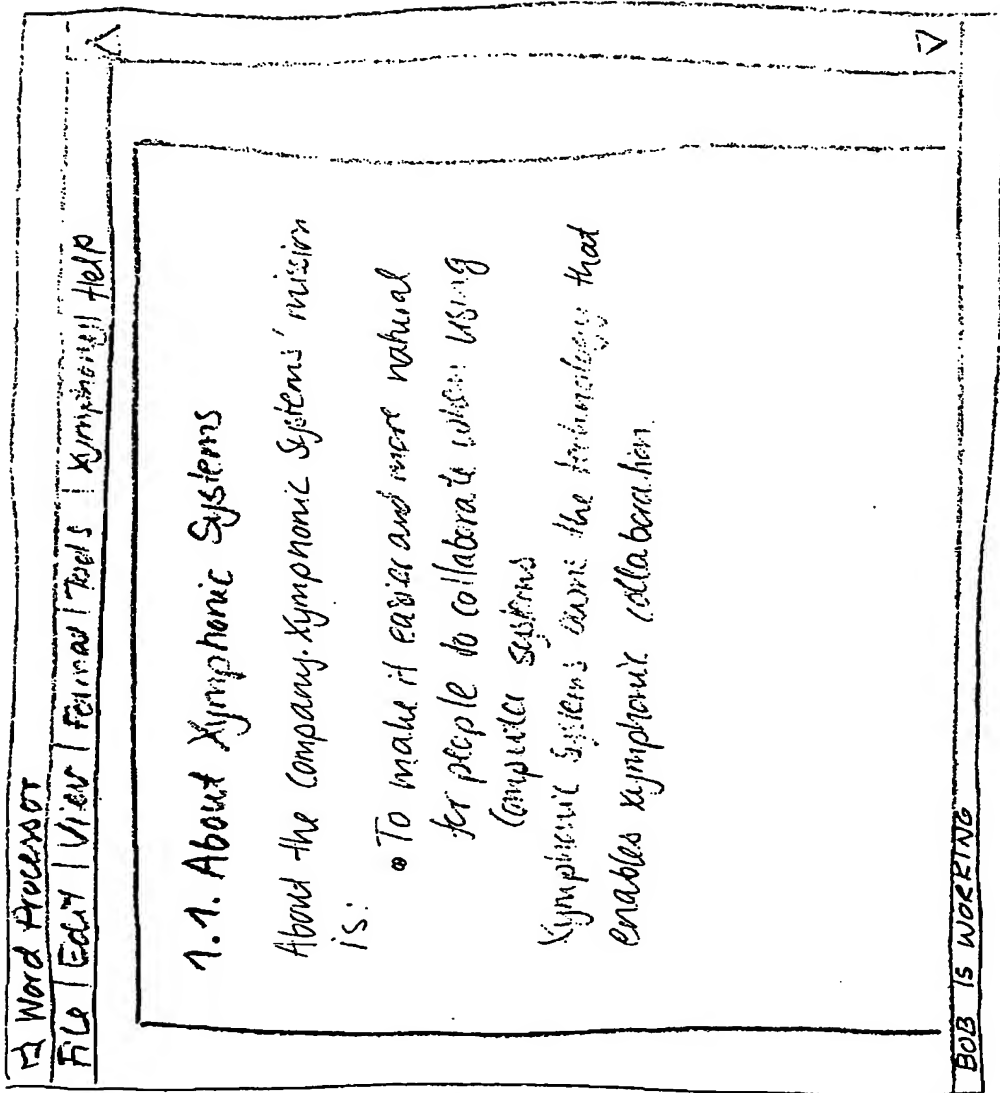 Word Processor
File | Edit | View | Format | Tools | Xymphony | Help
1.1. About Xymphonic Systems
About the Company. Xymphonic Systems' mission
is:
To make it easier and more natural
for people to collaborate when using
Computer systems
Xymphonic Systems owns the technology that
enables xymphonic collaboration.
BOB IS WORKING